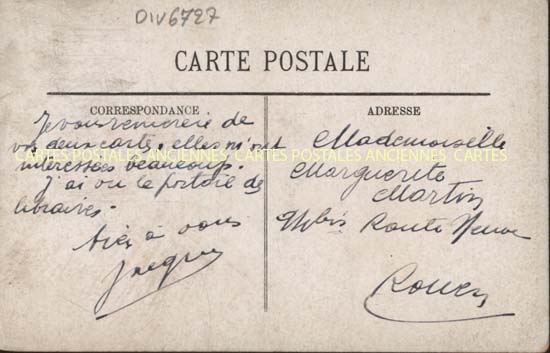 DIV6727
CARTE POSTALE
CORRESPONDANCE
Je vous remercie de
vos deux carte. elles m'ont
intéressées beaucoup.
J'ai vu le de
libraires.
à vous
Jacques
ADRESSE
Mademoiselle
Marguerite
Martin
bis Route Neuve
Rouen
CARTES POSTALES ANCIENNES CARTES POSTALES ANCIENNES CARTES